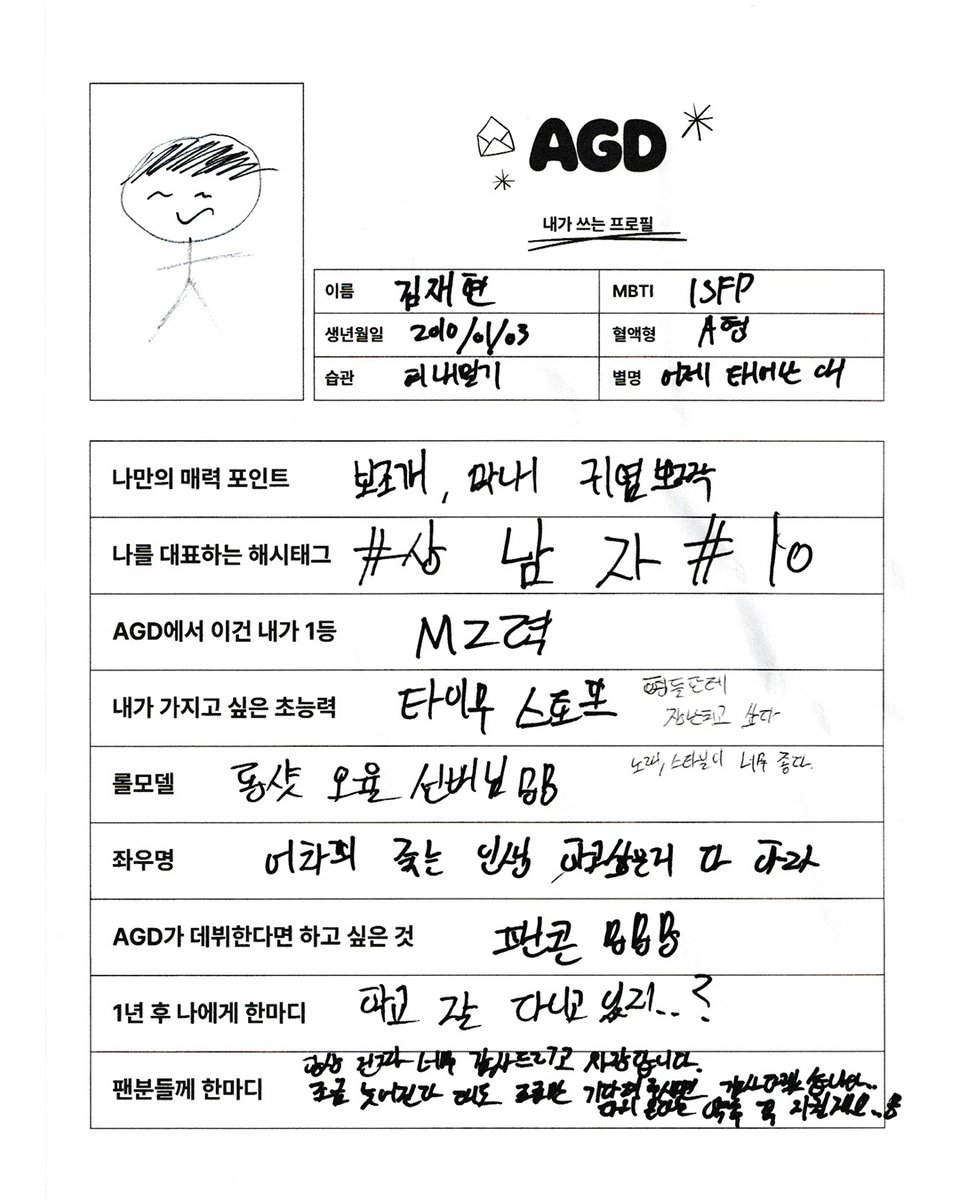 AGD
내가 쓰는 프로필
이름 김재현 MBTI ISFP
생년월일 2010/01/03 혈액형 A형
습관 피내말기 별명 어제 태어난 애
나만의 매력 포인트 보조개, 막내 귀염뽀짝
나를 대표하는 해시태그 #상남자 #10
AGD에서 이건 내가 1등 MZ력
내가 가지고 싶은 초능력 타이무 스토프 형들한테
장난치고 싶다
롤모델 롱샷 오율 선배님 노래, 스타일이 너무 좋다.
좌우명 어차피 늦는 인생 하고싶은거 다 하라
AGD가 데뷔한다면 하고 싶은 것 팬콘
1년 후 나에게 한마디 학교 잘 다니고 있지..?
팬분들께 한마디 항상 진짜 너무 감사드리고 사랑합니다.
조금 늦어진다 해도 조금만 기다려주시면 감사하겠습니다..
약속 꼭 지킬게요..